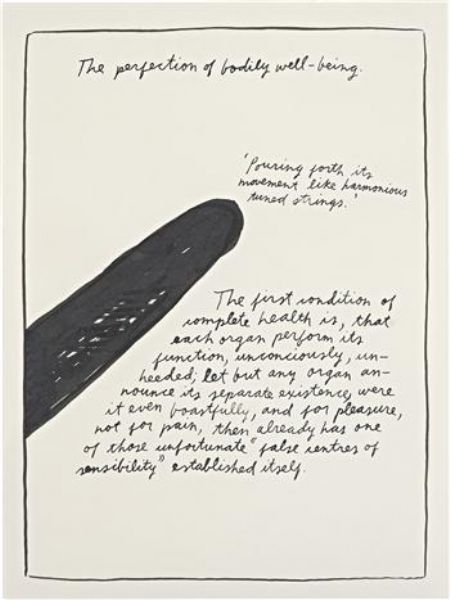 The perfection of bodily well-being.
'Pouring forth its
movement like harmonious
tuned strings.'
The first condition of
complete health is, that
each organ perform its
function, unconciously, un-
heeded; let but any organ an-
nounce its separate existence, were
it even boastfully, and for pleasure,
not for pain, then already has one
of those unfortunate "false centres of
sensibility" established itself.